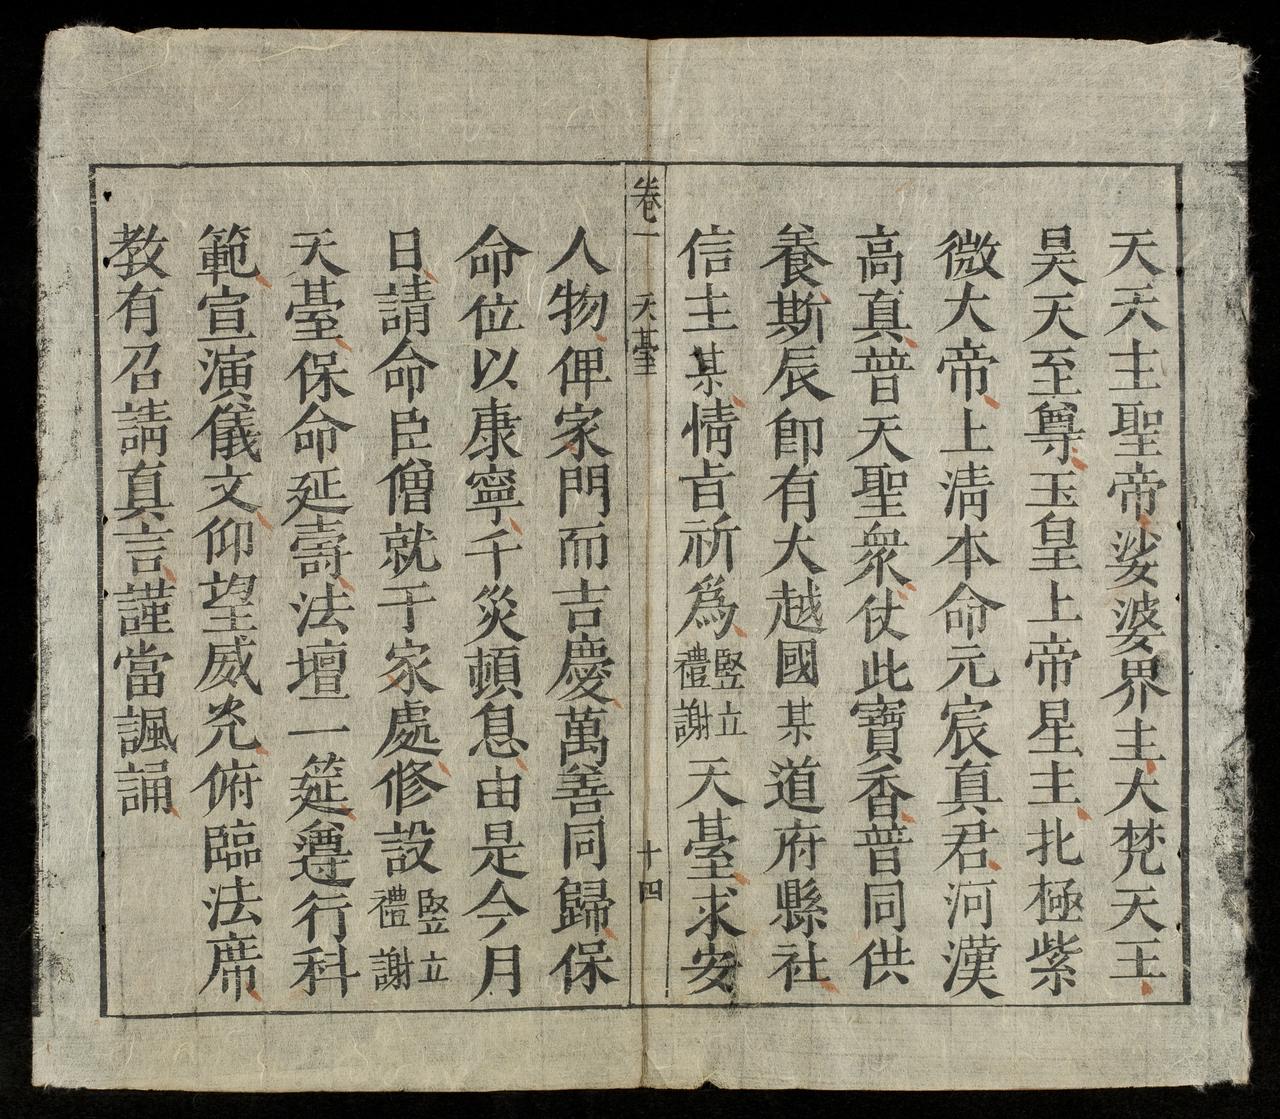 天天主聖帝娑婆界主大梵天王
昊天至尊玉皇上帝星主北極紫
微大帝上清本命元宸真君河漢
高真普天聖衆仗此寶香普同供
養斯辰卽有大越國某道府縣社
信主某情旨祈爲竪立禮謝天臺求安
卷一 天臺 十四
人物俾家門而吉慶萬善同歸保
命位以康寧千災頓息由是今月
日請命臣僧就于家處修設竪立禮謝
天臺保命延壽法壇一筵遵行科
範宣演儀文仰望威光俯臨法席
教有召請真言謹當諷誦